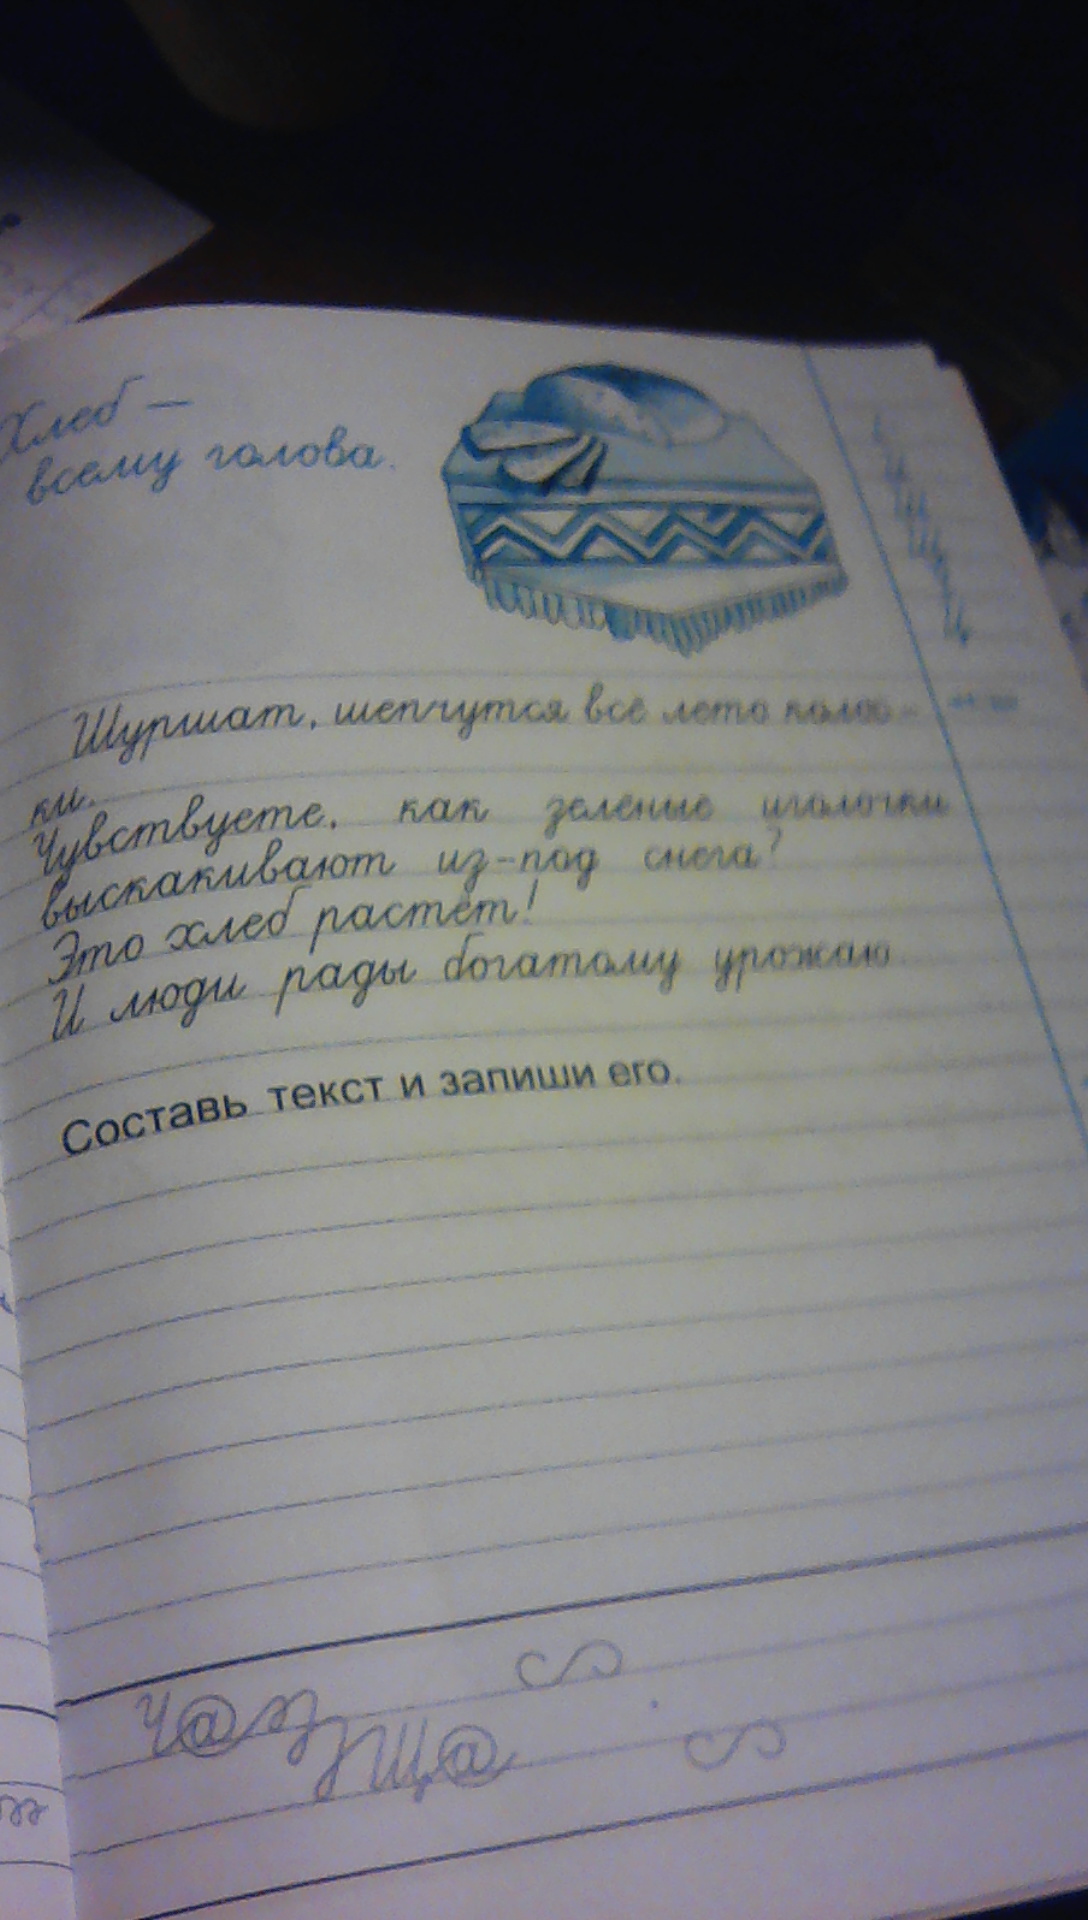 Хлеб —
всему голова.
Шуршат, шепчутся все лето колос-
ки.
Чувствуете, как зелёные иголочки
выскакивают из-под снега?
Это хлеб растёт!
И люди рады богатому урожаю.
Составь текст и запиши его.
ча
ща